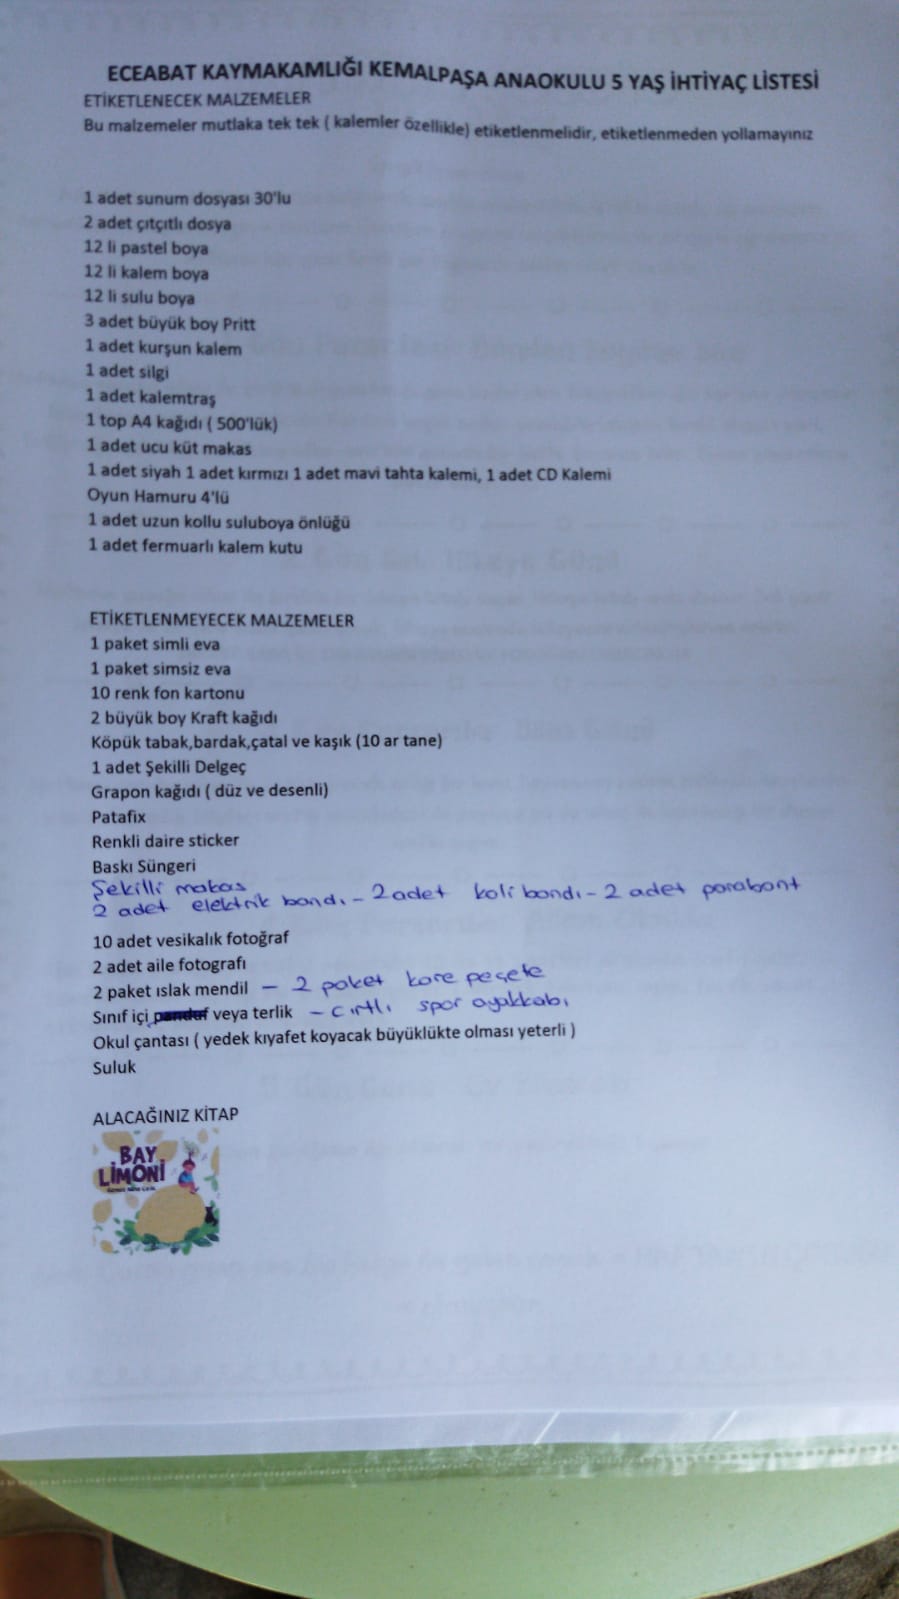 ECEABAT KAYMAKAMLIĞI KEMALPAŞA ANAOKULU 5 YAŞ İHTİYAÇ LİSTESİ
ETİKETLENECEK MALZEMELER
Bu malzemeler mutlaka tek tek ( kalemler özellikle) etiketlenmelidir, etiketlenmeden yollamayınız
1 adet sunum dosyası 30'lu
2 adet çıtçıtlı dosya
12 li pastel boya
12 li kalem boya
12 li sulu boya
3 adet büyük boy Pritt
1 adet kurşun kalem
1 adet silgi
1 adet kalemtraş
1 top A4 kağıdı ( 500'lük)
1 adet ucu küt makas
1 adet siyah 1 adet kırmızı 1 adet mavi tahta kalemi, 1 adet CD Kalemi
Oyun Hamuru 4'lü
1 adet uzun kollu suluboya önlüğü
1 adet fermuarlı kalem kutu
ETİKETLENMEYECEK MALZEMELER
1 paket simli eva
1 paket simsiz eva
10 renk fon kartonu
2 büyük boy Kraft kağıdı
Köpük tabak,bardak,çatal ve kaşık (10 ar tane)
1 adet Şekilli Delgeç
Grapon kağıdı ( düz ve desenli)
Patafix
Renkli daire sticker
Baskı Süngeri
Şekilli makas
2 adet elektrik bandı - 2 adet koli bandı - 2 adet parabant
10 adet vesikalık fotoğraf
2 adet aile fotografı
2 paket ıslak mendil - 2 paket kare peçete
Sınıf içi panduf veya terlik - cırtlı spor ayakkabı
Okul çantası ( yedek kıyafet koyacak büyüklükte olması yeterli )
Suluk
ALACAĞINIZ KİTAP
BAY
LİMONİ